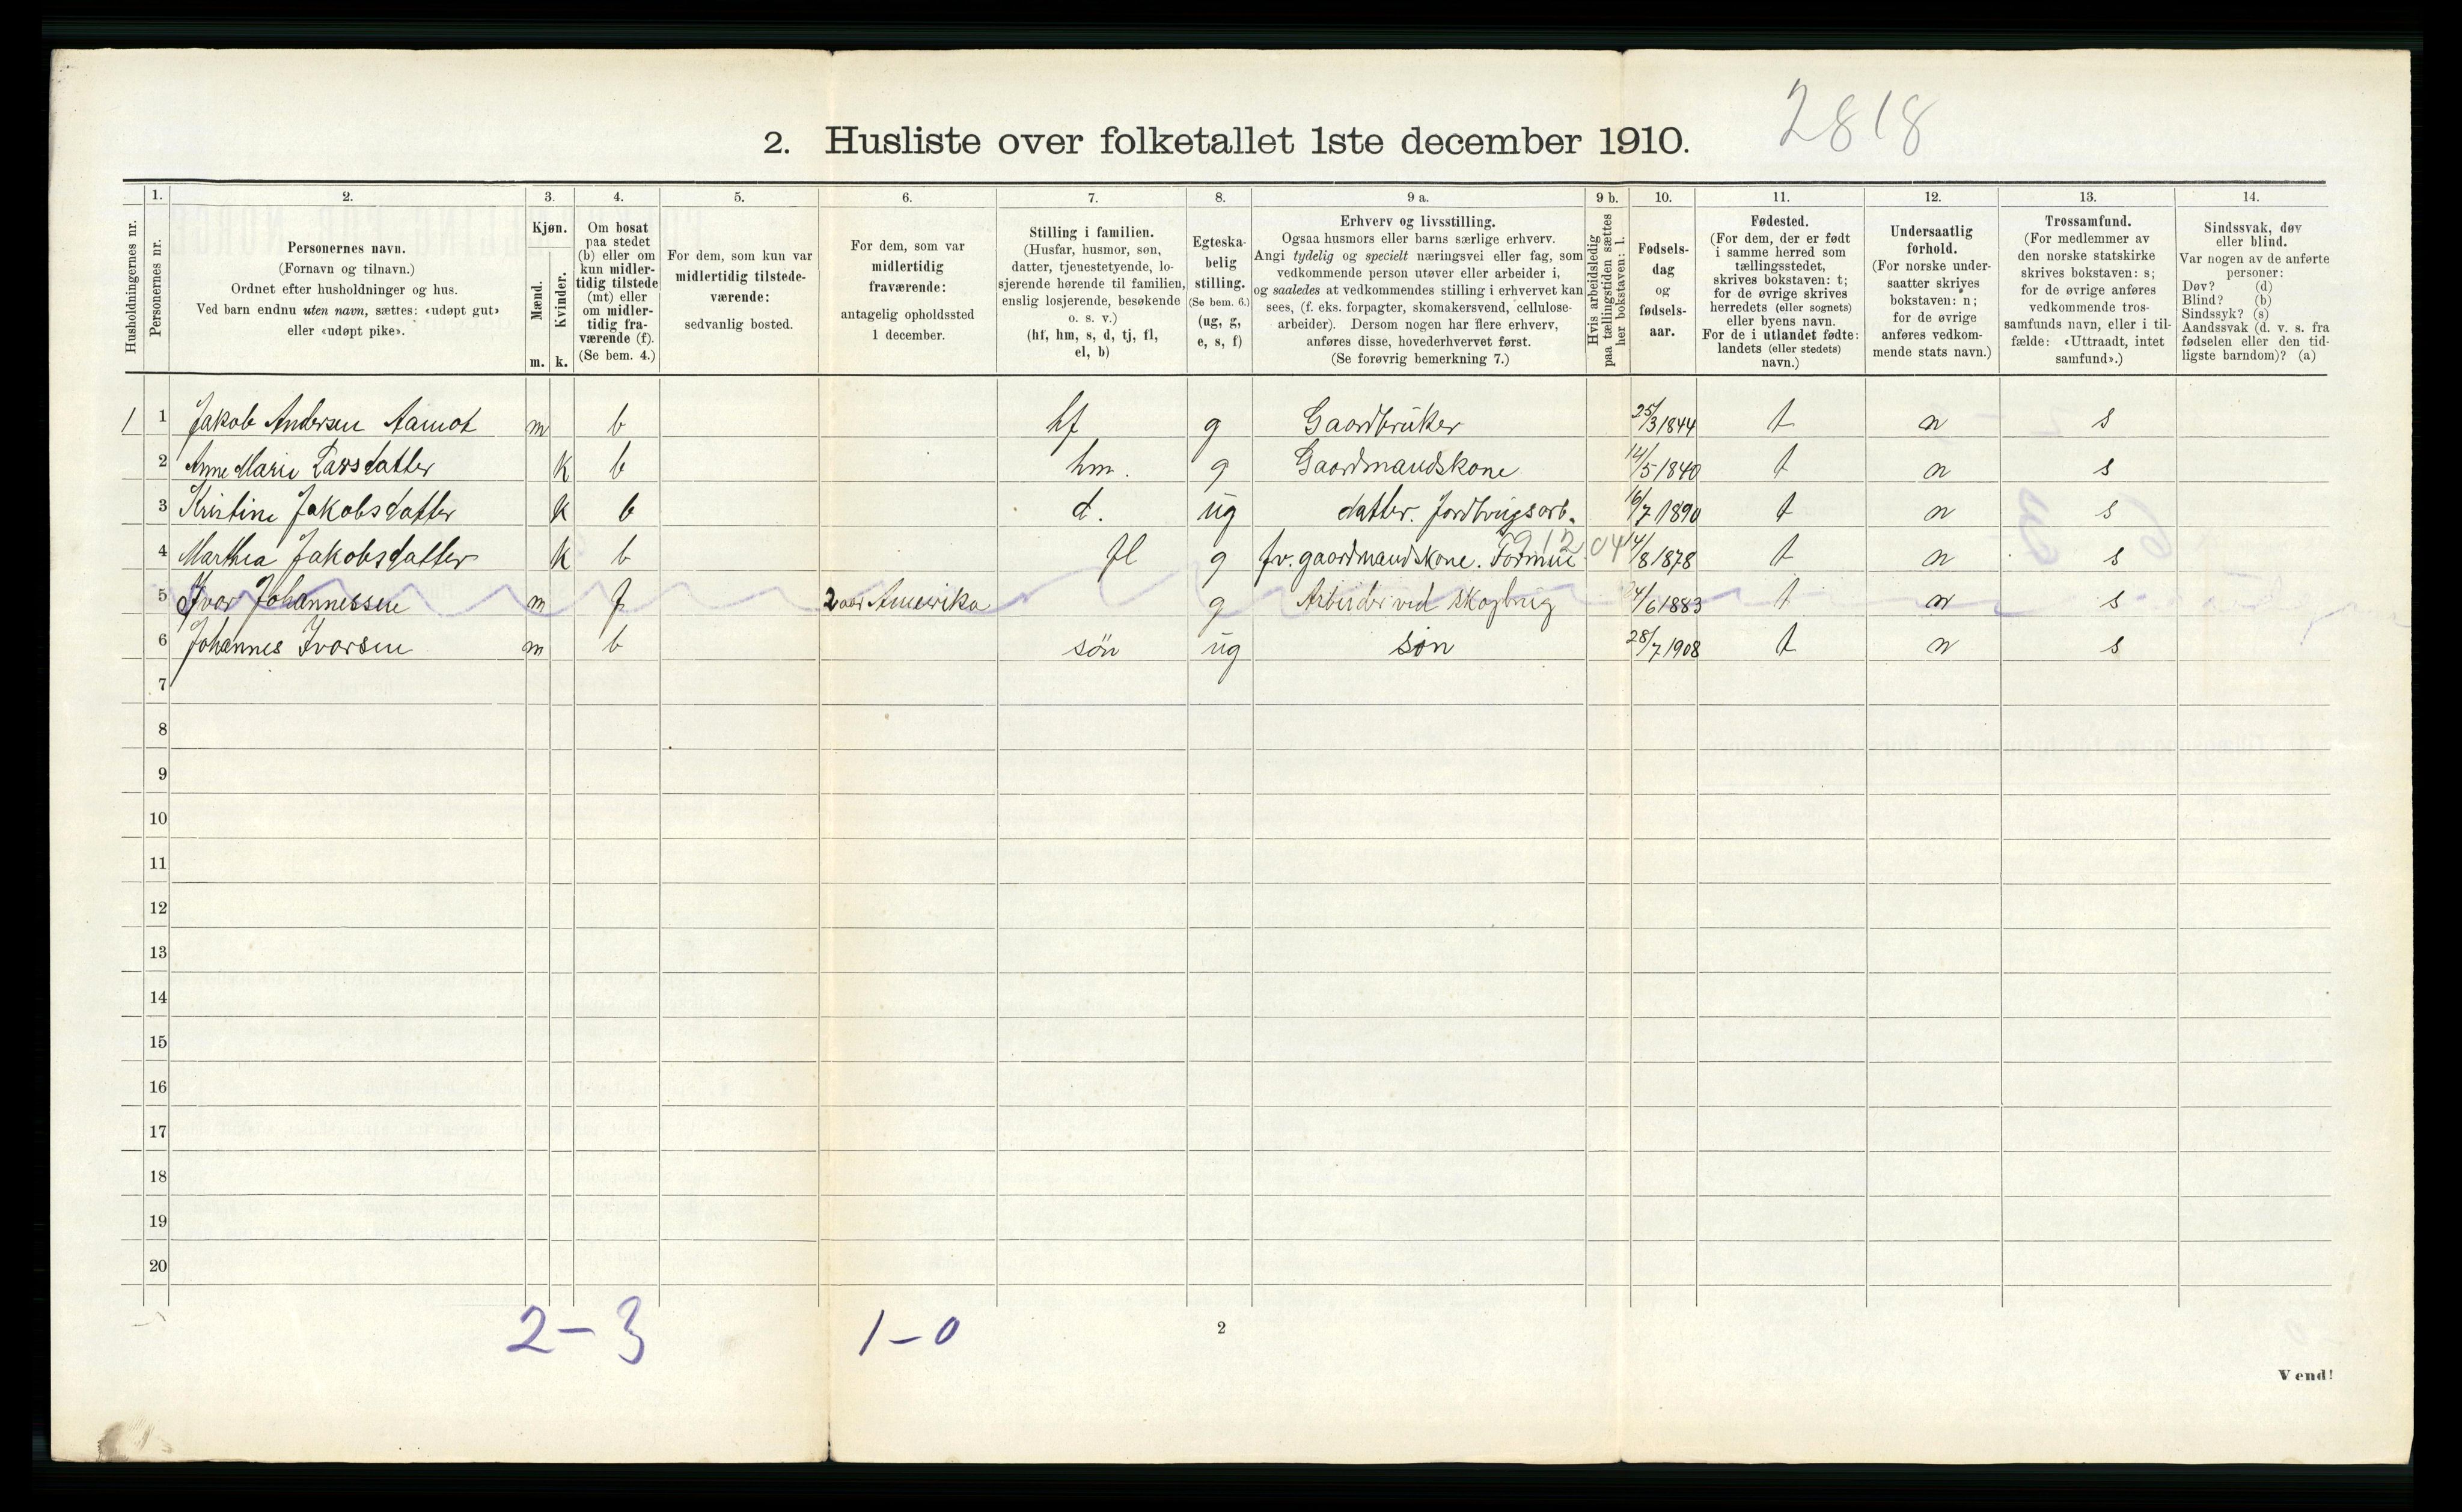 2818
2. Husliste over folketallet 1ste december 1910.
Husholdningernes nr.
1.
Personernes nr.
2.
Personernes navn.
(Fornavn og tilnavn.)
Ordnet efter husholdninger og hus.
Ved barn endnu uten navn, sættes: «udøpt gut»
eller «udøpt pike».
3.
Kjøn.
Mænd.
Kvinder.
m. k.
4.
Om bosat
paa stedet
(b) eller om
kun midler-
tidig tilstede
(mt) eller
om midler-
tidig fra-
værende (f).
(Se bem. 4.)
5.
For dem, som kun var
midlertidig tilstede-
værende:
sedvanlig bosted.
6.
For dem, som var
midlertidig
fraværende:
antagelig opholdssted
1 december.
7.
Stilling i familien.
(Husfar, husmor, søn,
datter, tjenestetyende, lo-
sjerende hørende til familien,
enslig losjerende, besøkende
o. s. v.)
(hf, hm, s, d, tj, fl,
el, b)
8.
Egteska-
belig
stilling.
(Se bem. 6.)
(ug, g,
e, s, f)
9 a.
Erhverv og livsstilling.
Ogsaa husmors eller barns særlige erhverv.
Angi tydelig og specielt næringsvei eller fag, som
vedkommende person utøver eller arbeider i,
og saaledes at vedkommendes stilling i erhvervet kan
sees, (f. eks. forpagter, skomakersvend, cellulose-
arbeider). Dersom nogen har flere erhverv,
anføres disse, hovederhvervet først.
(Se forøvrig bemerkning 7.)
9 b.
Hvis arbeidsledig
paa tællingstiden sættes
her bokstaven: l.
10.
Fødsels-
dag
og
fødsels-
aar.
11.
Fødested.
(For dem, der er født
i samme herred som
tællingsstedet,
skrives bokstaven: t;
for de øvrige skrives
herredets (eller sognets)
eller byens navn.
For de i utlandet fødte:
landets (eller stedets)
navn.)
12.
Undersaatlig
forhold.
(For norske under-
saatter skrives
bokstaven: n;
for de øvrige
anføres vedkom-
mende stats navn.)
13.
Trossamfund.
(For medlemmer av
den norske statskirke
skrives bokstaven: s;
for de øvrige anføres
vedkommende tros-
samfunds navn, eller i til-
fælde: «Uttraadt, intet
samfund».)
14.
Sindssvak, døv
eller blind.
Var nogen av de anførte
personer:
Døv? (d)
Blind? (b)
Sindssyk? (s)
Aandssvak (d. v. s. fra
fødselen eller den tid-
ligste barndom)? (a)
1 1 Jakob Andersen Aamot m b hf g Gaardbruker 25/3 1844 t n s
2 Anne Marie Larsdatter k b hm. g Gaardmandskone 14/5 1840 t n s
3 Kristine Jakobsdatter k b d. ug datter. Jordbrugsarb. 16/7 1890 t n s
4 Marthea Jakobsdatter k b fl g fv. gaardmandskone. Formue 912.04 /8 1878 t n s
5 Ivar Johannessen m f 2 aar Amerika g Arbeider ved skogbrug 24/6 1883 t n s
6 Johannes Ivarsen m b søn ug søn 28/7 1908 t n s
7
8
9
10
11
12
13
14
15
16
17
18
19
20
2-3 1-0
2
Vend!